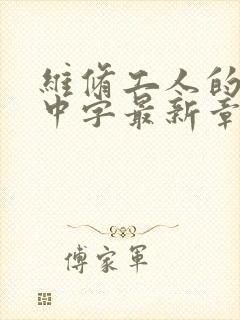 維脩工人的
中字最新章
傅家軍